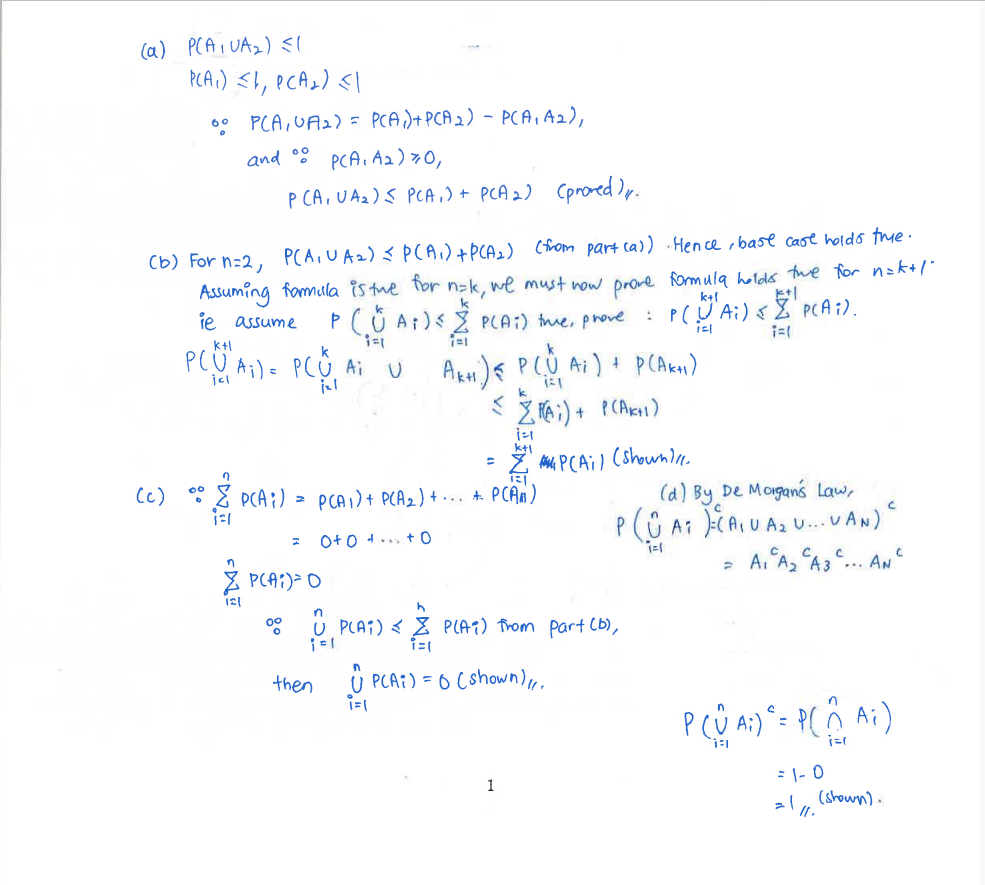 (a) P(A₁∪A₂) ≤ 1
P(A₁) ≤ 1, P(A₂) ≤ 1
∵ P(A₁∪A₂) = P(A₁)+P(A₂) − P(A₁A₂),
and ∵ P(A₁A₂) ≥ 0,
P(A₁∪A₂) ≤ P(A₁) + P(A₂) (proved)//.
(b) For n=2, P(A₁∪A₂) ≤ P(A₁)+P(A₂) (from part (a)). Hence, base case holds true.
Assuming formula is true for n=k, we must now prove formula holds true for n=k+1.
ie assume P(⋃_{i=1}^{k} Ai) ≤ Σ_{i=1}^{k} P(Ai) true, prove : P(⋃_{i=1}^{k+1} Ai) ≤ Σ_{i=1}^{k+1} P(Ai).
P(⋃_{i=1}^{k+1} Ai) = P(⋃_{i=1}^{k} Ai ∪ A_{k+1}) ≤ P(⋃_{i=1}^{k} Ai) + P(A_{k+1})
≤ Σ_{i=1}^{k} P(Ai) + P(A_{k+1})
= Σ_{i=1}^{k+1} P(Ai) (shown)//.
(c) ∵ Σ_{i=1}^{n} P(Ai) = P(A₁) + P(A₂) + ... + P(An)
= 0+0+...+0
Σ_{i=1}^{n} P(Ai) = 0
∵ ⋃_{i=1}^{n} P(Ai) ≤ Σ_{i=1}^{n} P(Ai) from part (b),
then ⋃_{i=1}^{n} P(Ai) = 0 (shown)//.
(d) By De Morgan's Law,
P(⋃_{i=1}^{n} Ai)^c = (A₁∪A₂∪...∪A_N)^c
= A₁^c A₂^c A₃^c ... A_N^c
P(⋃_{i=1}^{n} Ai)^c = P(⋂_{i=1}^{n} Ai)
= 1−0
= 1 //. (shown).
1